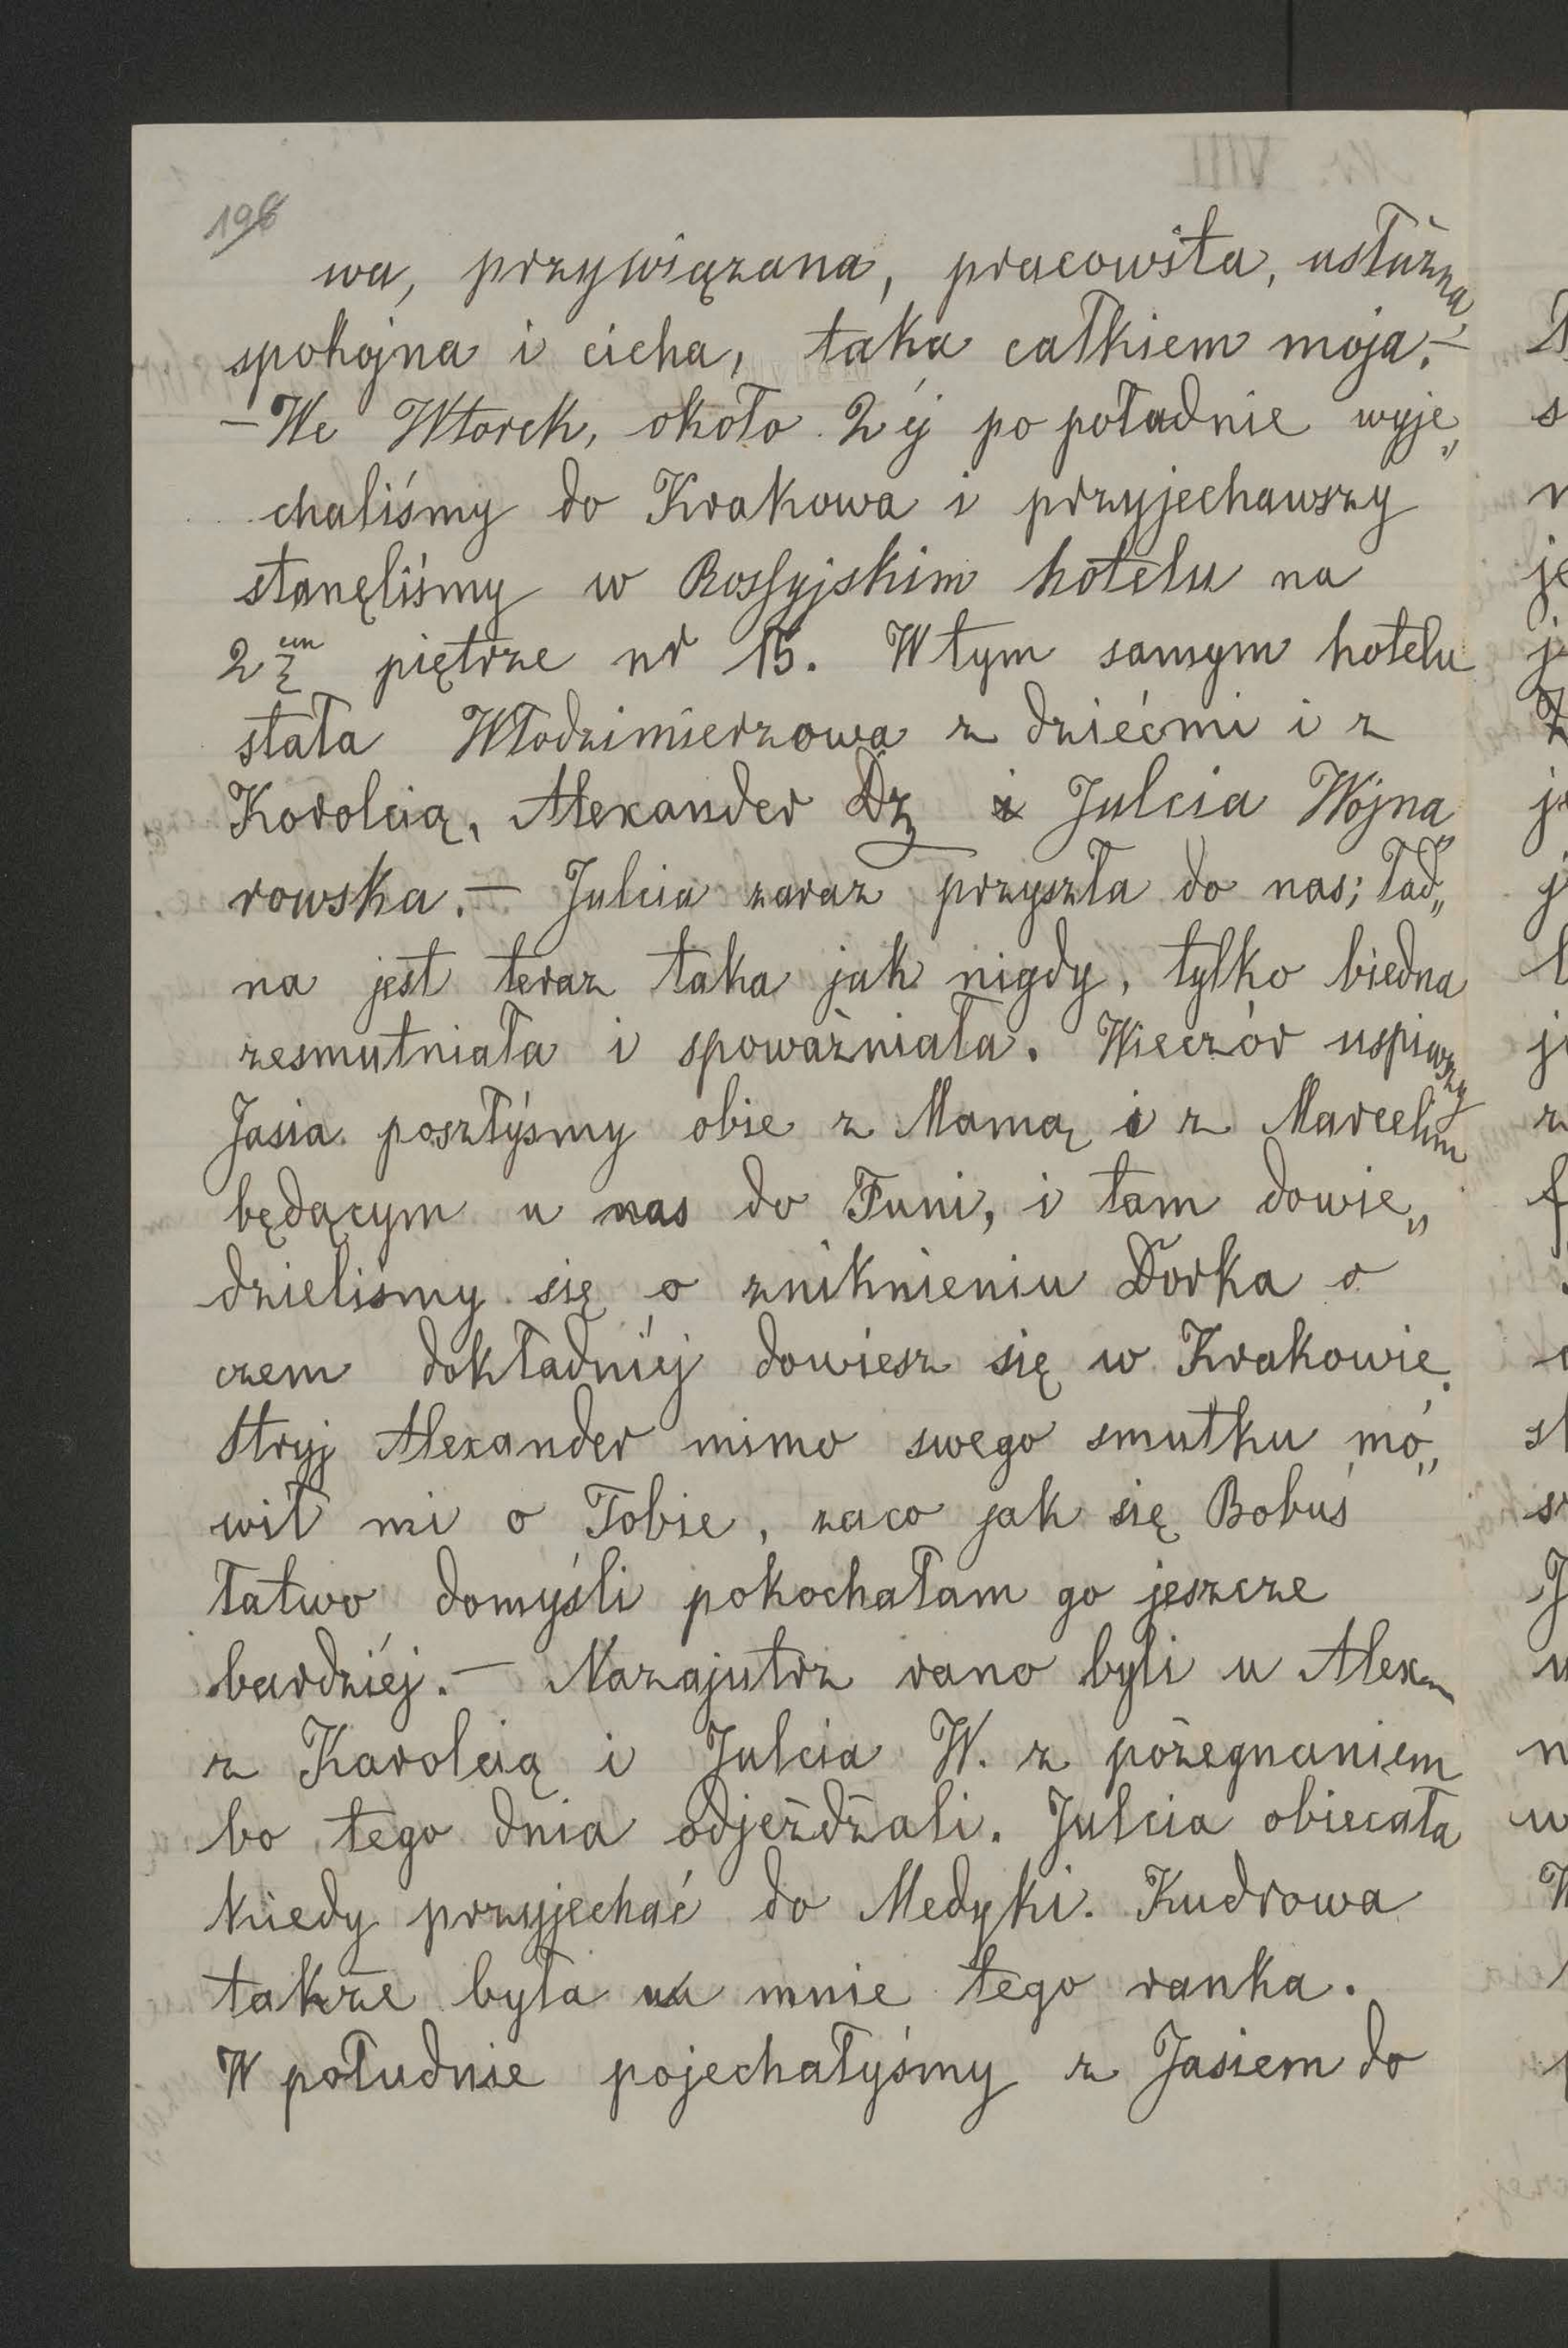 198
wa, przywiązana, pracowita, usłużna,
spokojna i cicha, taka całkiem moja.—
— We Wtorek, około 2éj po południe wyje„
chaliśmy do Krakowa i przyjechawszy
stanęliśmy w Rossyjskim hotelu na
2em piętrze nr 15. W tym samym hotelu
stała Włodzimierzowa z dziećmi i z
Karolcią, Alexander Dz i Julcia Wojna„
rowska.— Julcia zaraz przyszła do nas; ład„
na jest teraz taka jak nigdy, tylko biedna
zesmutniała i spoważniała. Wieczór uspiwszy
Jasia poszłyśmy obie z Mamą i z Marcelim
będącym u nas do Funi, i tam dowie„
dzieliśmy się o zniknieniu Dorka o
czem dokładniéj dowiesz się w Krakowie.
Stryj Alexander mimo swego smutku mó„
wił mi o Tobie, zaco jak się Bobuś
łatwo domyśli pokochałam go jeszcze
bardziéj.— Nazajutrz rano byli u Alex
z Karolcią i Julcia W. z pożegnaniem
bo tego dnia odjeżdżali. Julcia obiecała
kiedy przyjechać do Medyki. Kudrowa
także była u mnie tego ranka.
W południe pojechałyśmy z Jasiem do